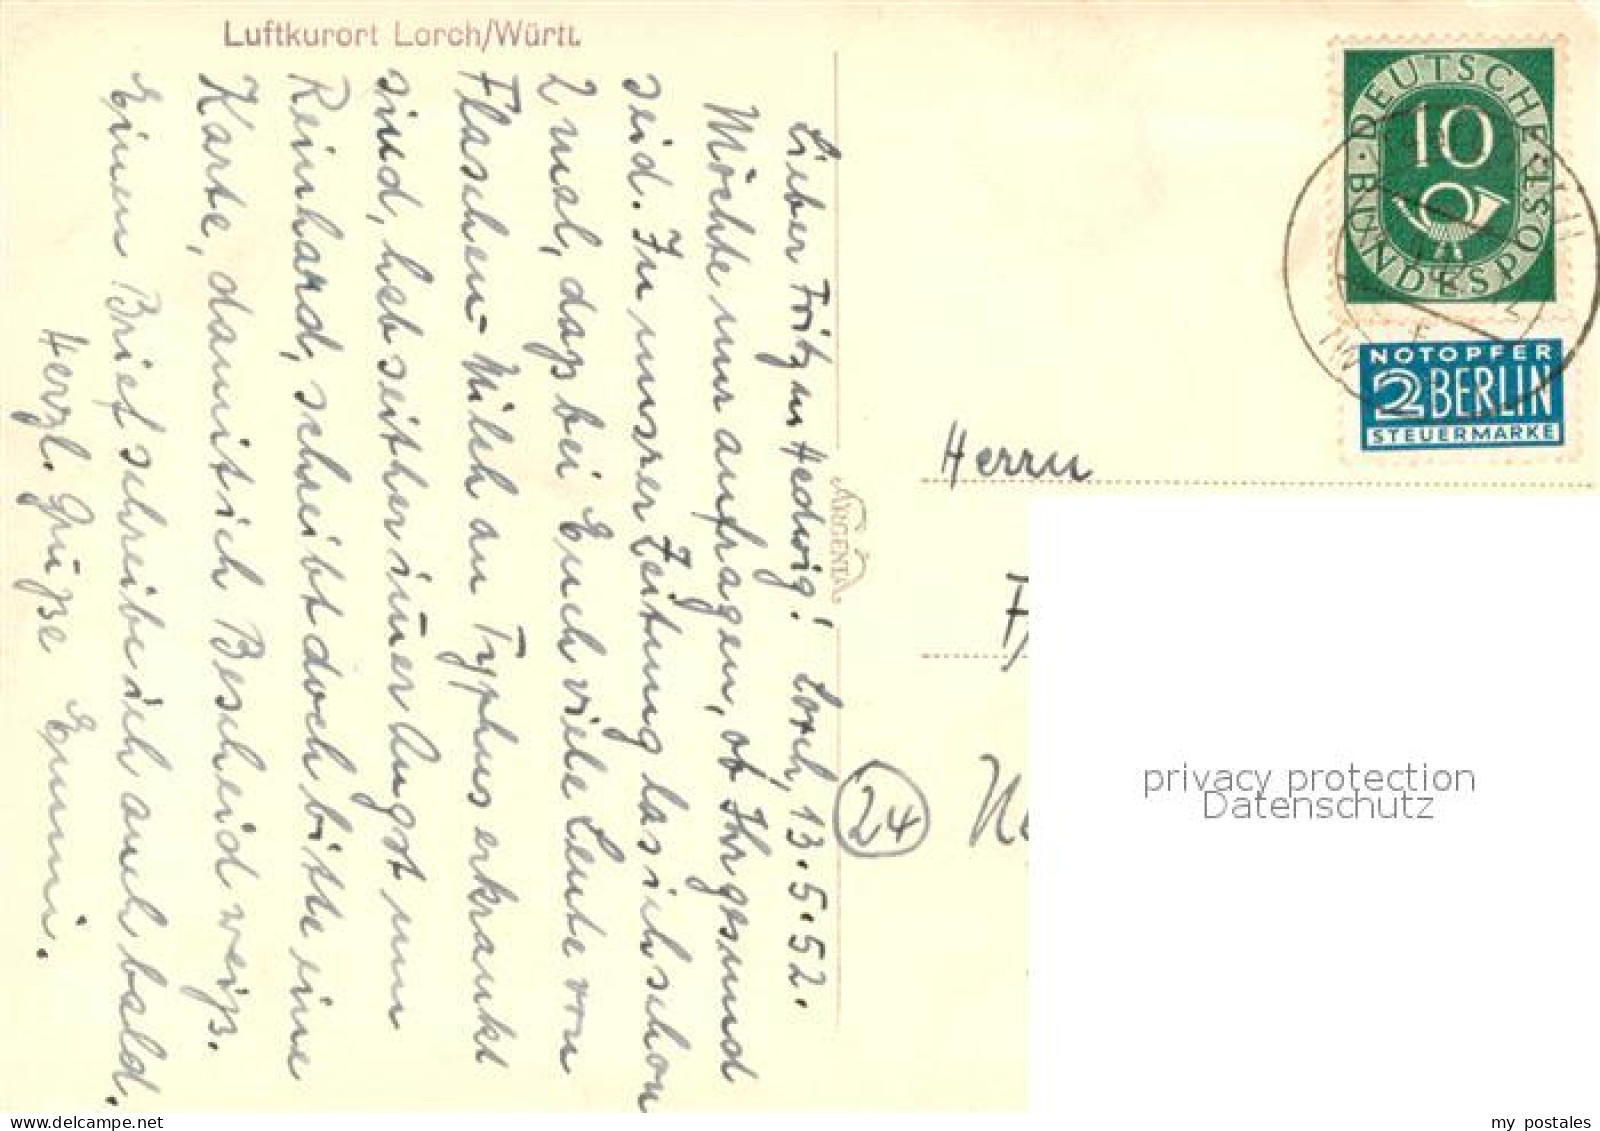 Luftkurort Lorch/Württ.
Lieber Fritz u Hedwig! Lorch, 13.5.52.
Möchte nur anfragen, ob Ihr gesund
seid. In unsrer Zeitung las ich schon
2 mal, daß bei Euch viele Leute von
Flaschen-Milch an Typhus erkrankt
sind, heb seither imer Angst um
Reinhard, schreibt doch bitte eine
Karte, damit ich Bescheid weiß.
Einen Brief schreibe ich auch bald.
Herzl. Grüße Emmi.
ARGENTA
24
DEUTSCHE BUNDESPOST
10
NOTOPFER
2 BERLIN
STEUERMARKE
Herrn
privacy protection
Datenschutz
delcampe.net
my_postales